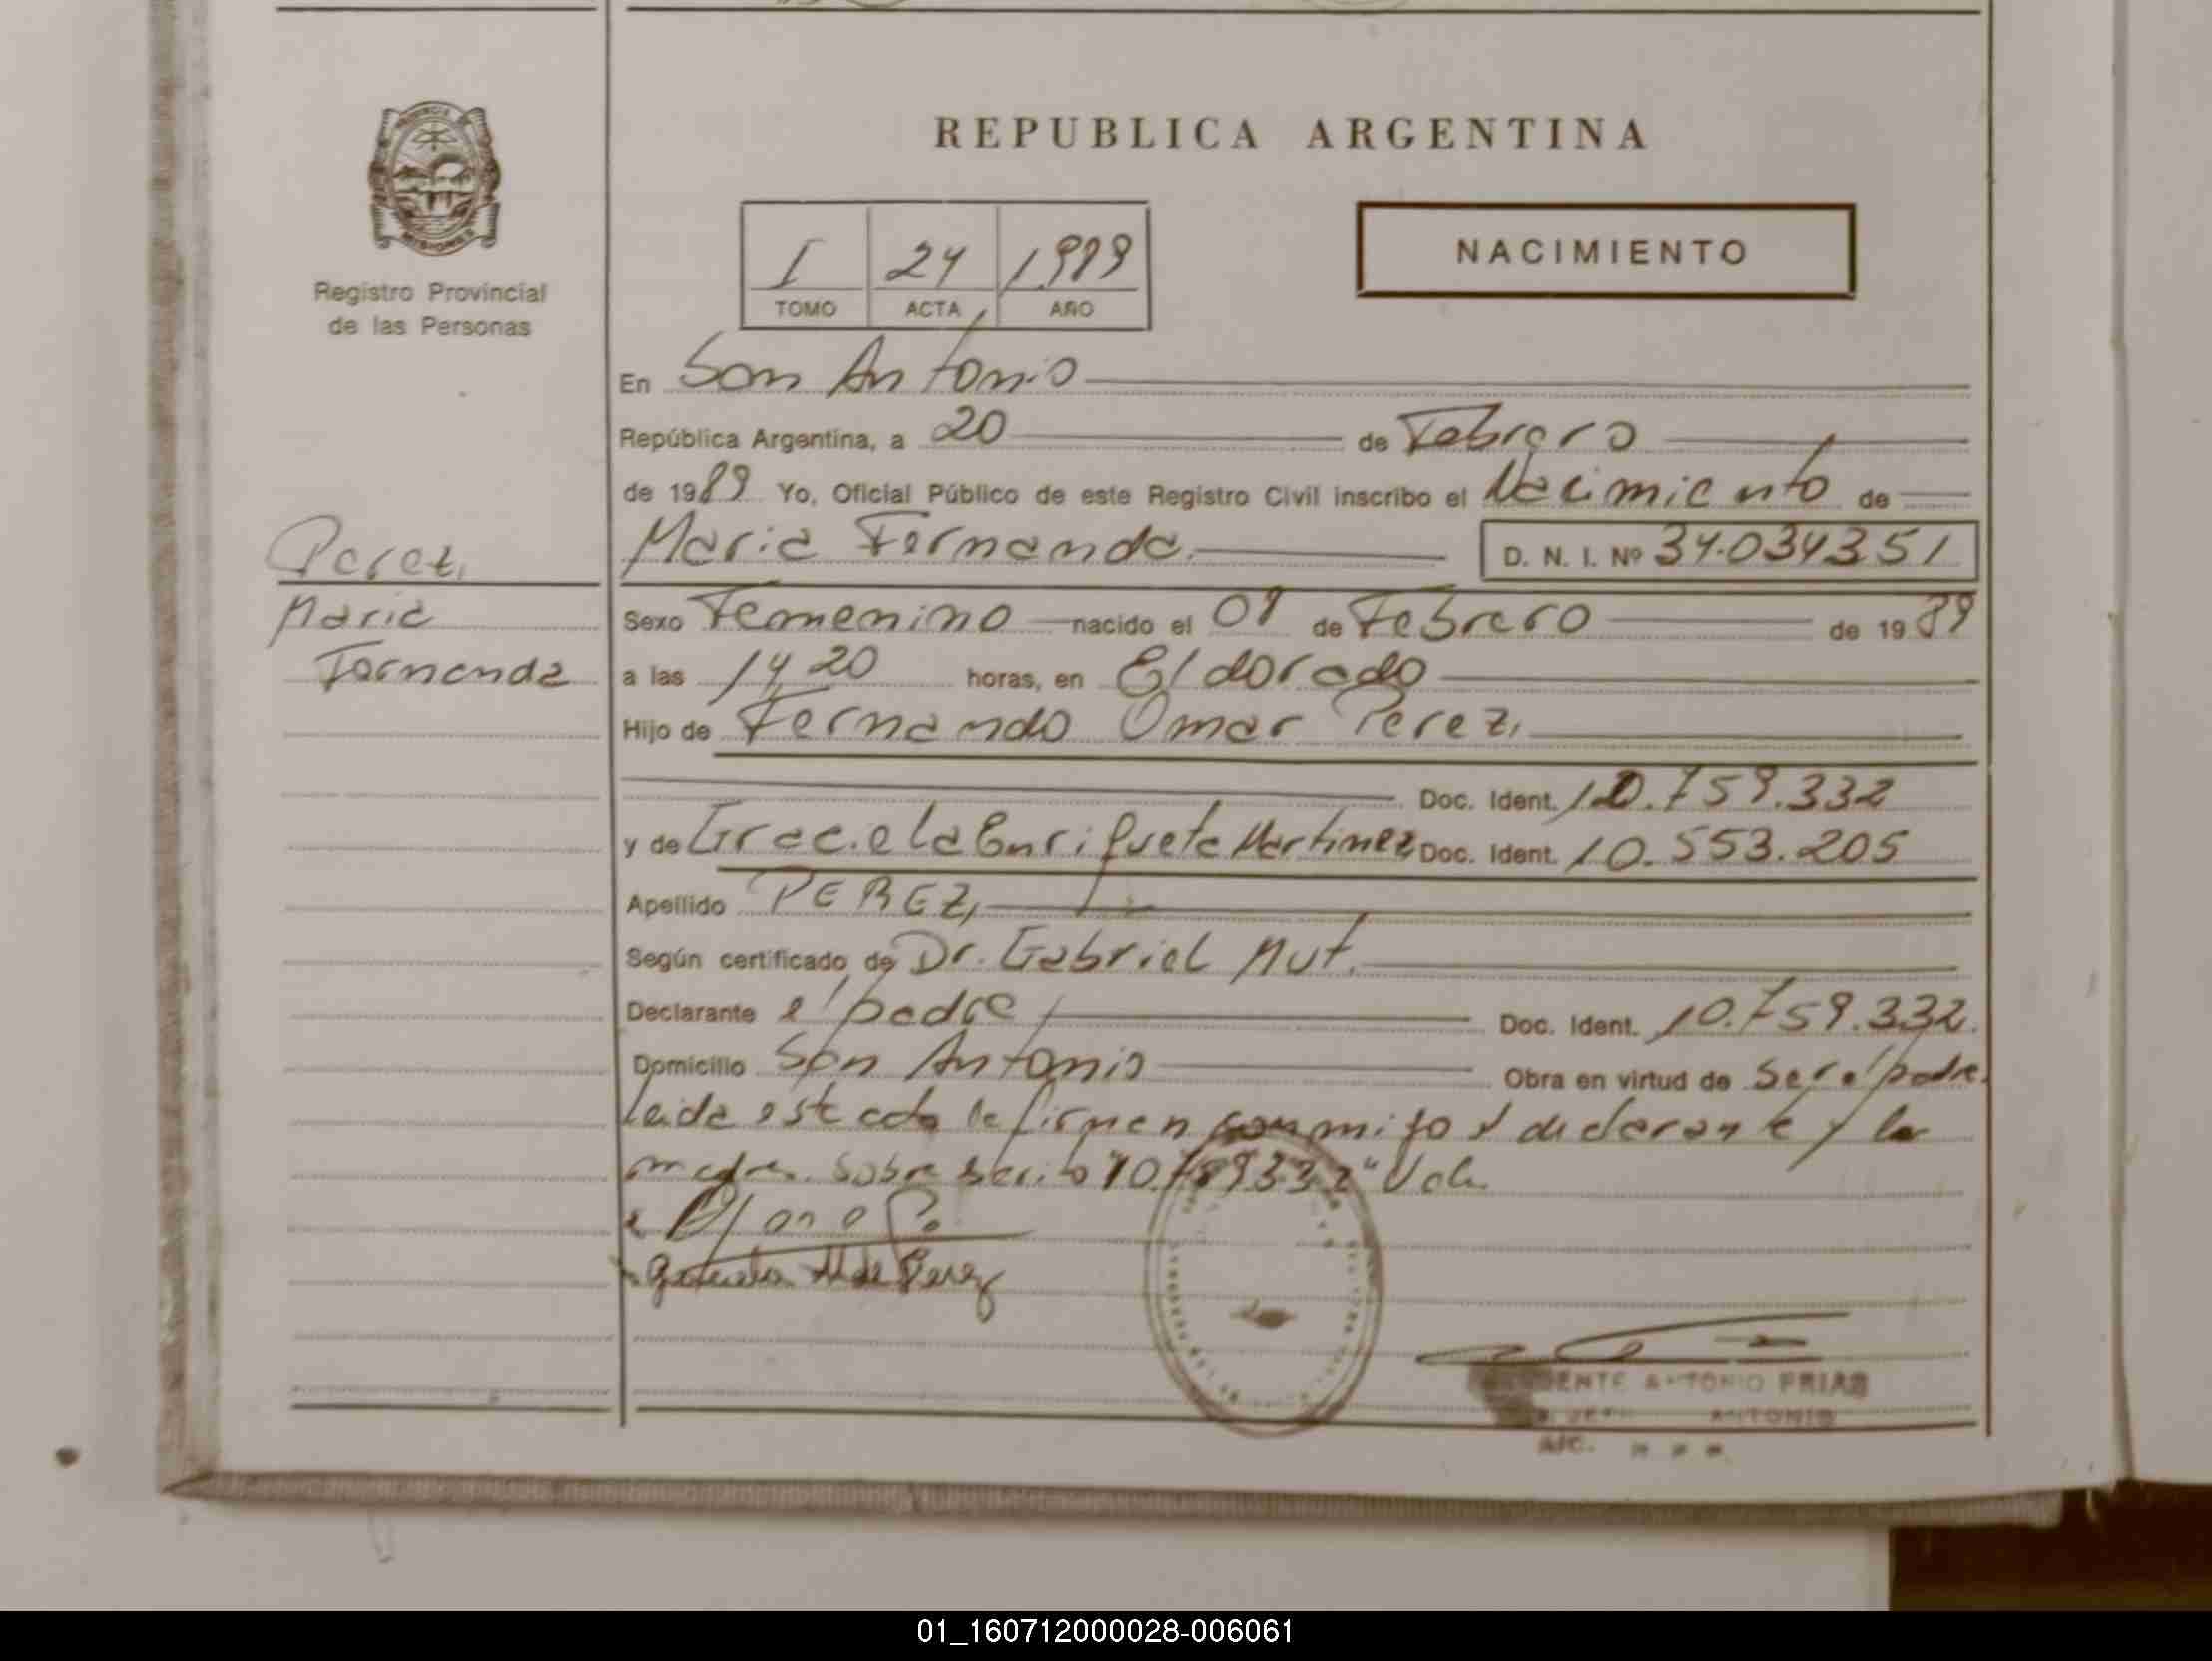 REPUBLICA ARGENTINA
NACIMIENTO
I 24 1989
TOMO ACTA AÑO
MISIONES
Registro Provincial
de las Personas
En San Antonio
República Argentina, a 20 de Febrero
de 1989 Yo, Oficial Público de este Registro Civil inscribo el Nacimiento de
Perez,
Maria Fernanda. D. N. I. Nº 34.034351
Maria
Fernanda
Sexo Femenino nacido el 08 de Febrero de 1989
a las 14 20 horas, en Eldorado
Hijo de Fernando Omar Perez,
Doc. Ident. 10.759.332
y de Graciela Enriqueta Martinez Doc. Ident. 10.553.205
Apellido PEREZ,
Según certificado de Dr. Gabriel Mut.
Declarante el padre Doc. Ident. 10.759.332.
Domicilio San Antonio Obra en virtud de ser el padre.
Leida el acta la firman conmigo el declarante y la
madre. Sobre escrito "10.759332" Vale.
Graciela M de Perez
ANTONIO FRIAS
ANTONIO
A/C.
01_160712000028-006061